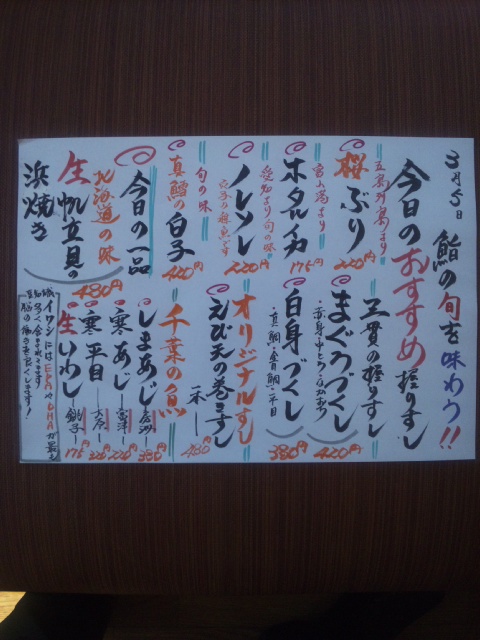 3月5日
鮨の旬を味わう!!
今日のおすすめ握りすし
五島列島より
桜ぶり
220円
富山湾より
ホタルイカ
175円
愛知より旬の味
ノレソレ
穴子の稚魚です
220円
旬の味
真鱈の白子
420円
今日の一品
北海道の味
生帆立貝の
浜焼き
480円
三貫の握りすし
まぐろづくし
420円
白身づくし
真鯛・金目鯛・平目
380円
オリジナルすし
えび天の巻きすし
一本
480円
千葉の魚
しまあじ
380円
寒あじ
富津
220円
寒平目
320
生いわし
銚子
175円
豆知識
イワシにはEPAやDHAが最も
多く含まれてます
脳の働きを良くします!